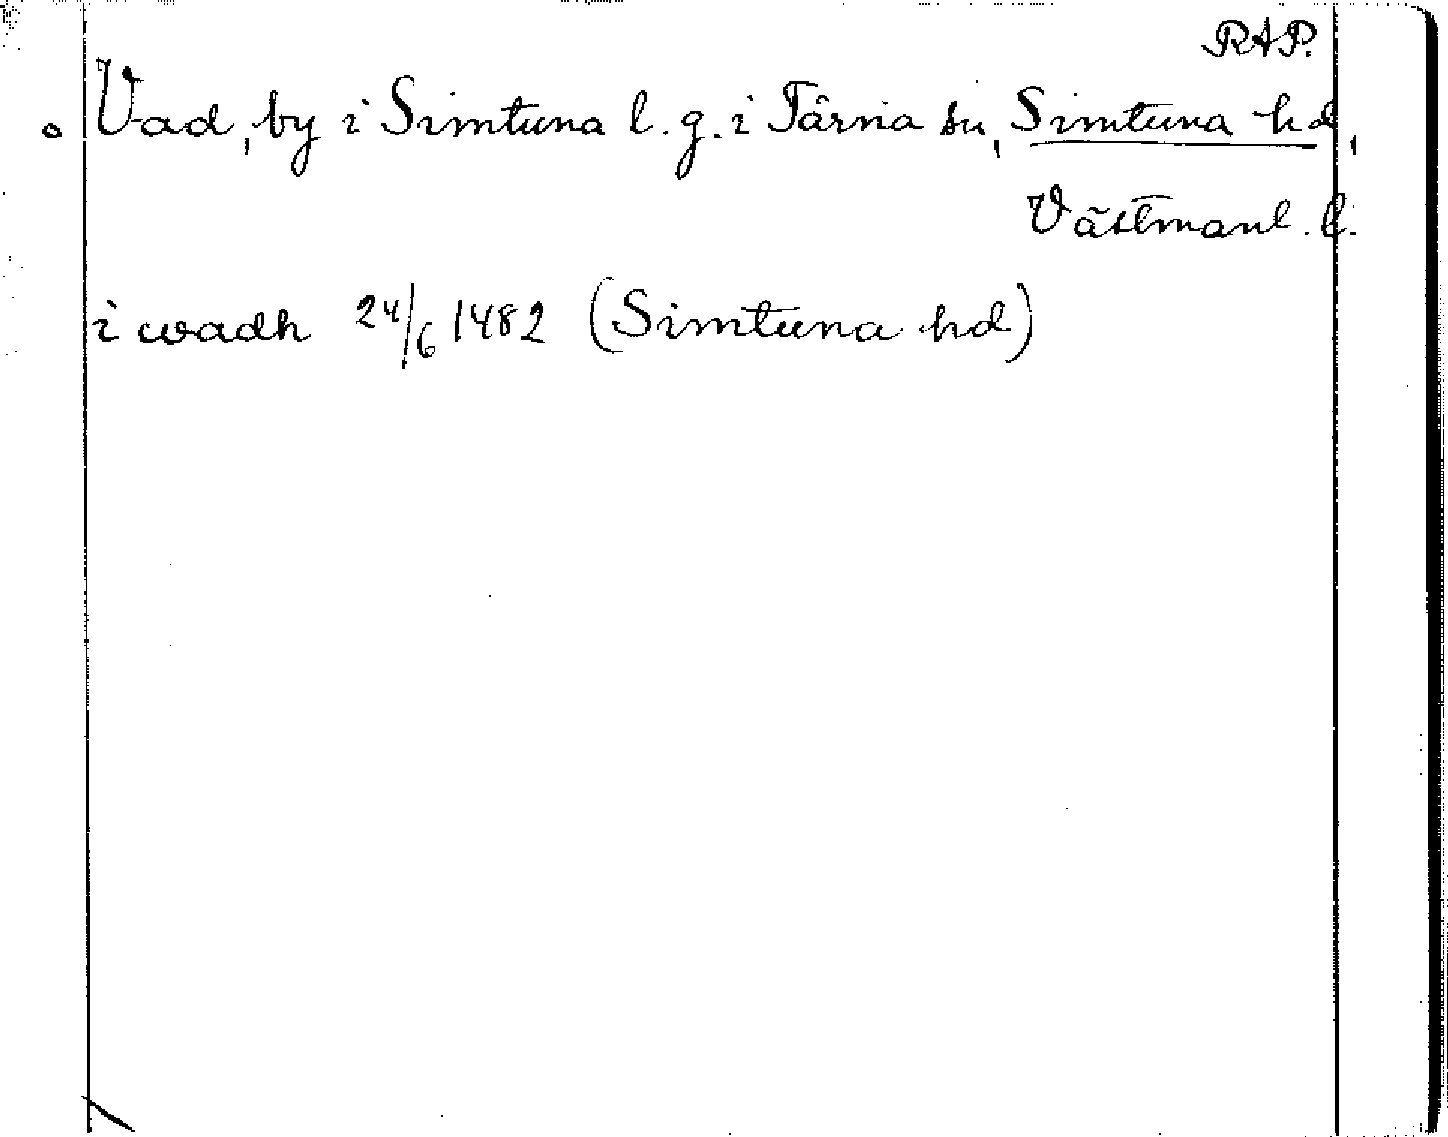 RAP.
o Vad, by i Simtuna l. g. i Tärna sn, Simtuna hd,
Västmanl. l.
i wadh 24/6 1482 (Simtuna hd)